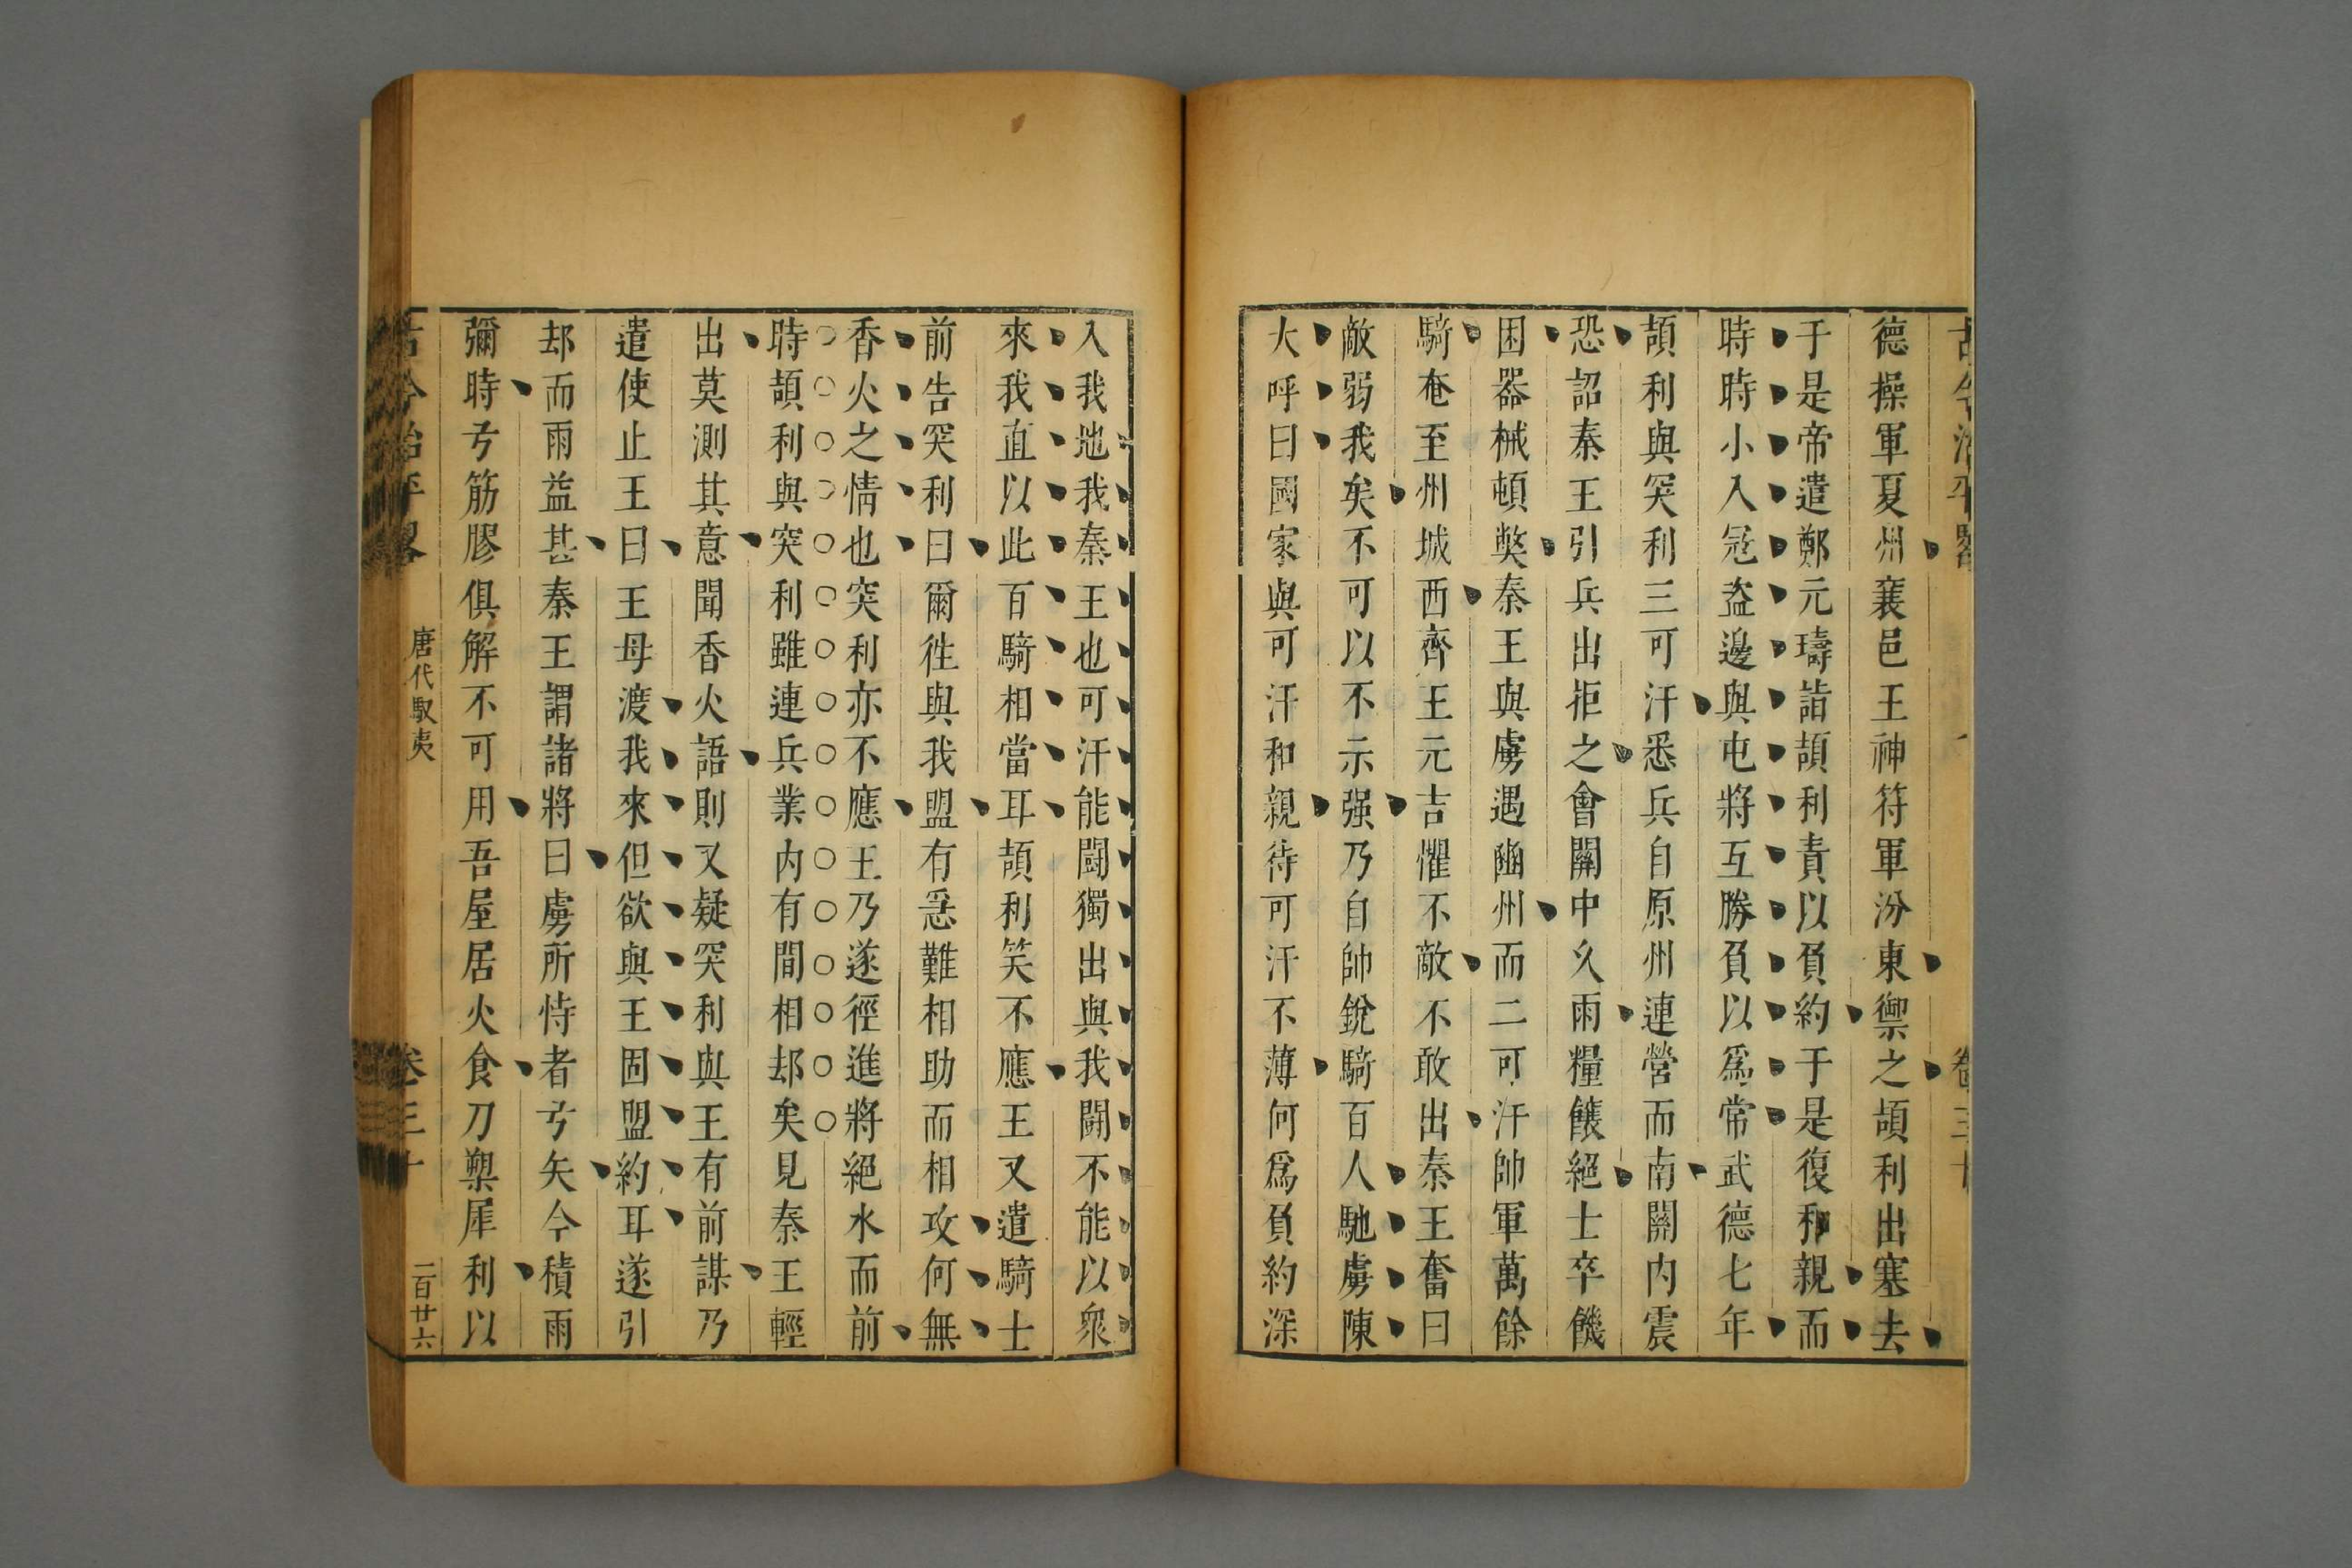 古今治平畧
卷三十
德操軍夏州襄邑王神符軍汾東禦之頡利出塞去
于是帝遣鄭元璹詣頡利責以負約于是復和親而
時時小入冦盜邊與屯將互勝負以爲常武德七年
頡利與突利三可汗悉兵自原州連營而南關内震
恐詔秦王引兵出拒之會關中久雨糧餽絕士卒饑
困器械頓獘秦王與虜遇豳州而二可汗帥軍萬餘
騎奄至州城西齊王元吉懼不敵不敢出秦王奮曰
敵弱我矣不可以不示强乃自帥銳騎百人馳虜陳
大呼曰國家與可汗和親待可汗不薄何爲負約深
入我地我秦王也可汗能鬪獨出與我鬪不能以衆
來我直以此百騎相當耳頡利笑不應王又遣騎士
前告突利曰爾徃與我盟有急難相助而相攻何無
香火之情也突利亦不應王乃遂徑進將絕水而前
時頡利與突利雖連兵業内有間相却矣見秦王輕
出莫測其意聞香火語則又疑突利與王有前謀乃
遣使止王曰王母渡我來但欲與王固盟約耳遂引
却而雨益甚秦王謂諸將曰虜所恃者弓矢今積雨
彌時弓筋膠俱解不可用吾屋居火食刀槊犀利以
古今治平畧
唐代馭夷
卷三十
一百廿六